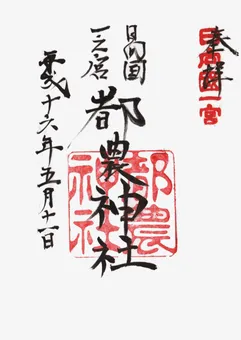 奉拝
日向国一宮
日向国
一之宮
都農神社
都農
神社
平成十六年五月十一日